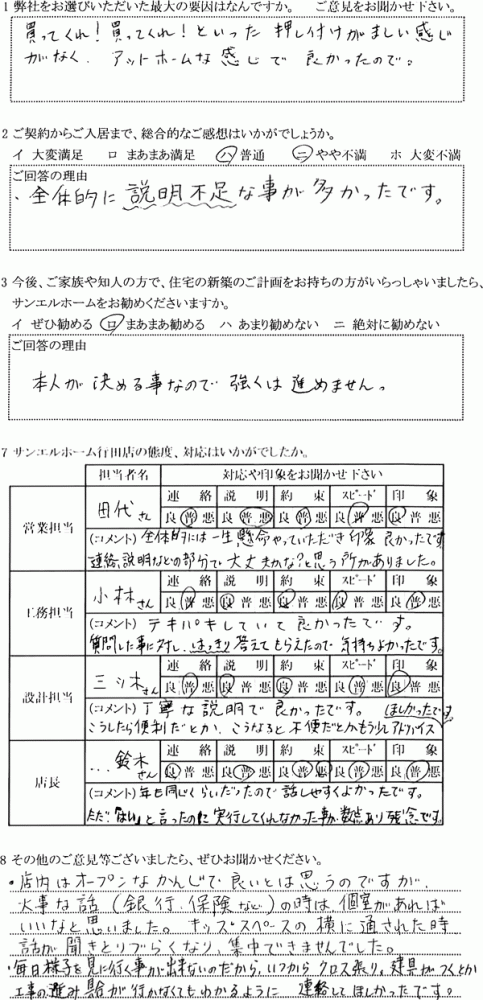 1 弊社をお選びいただいた最大の要因はなんですか。 ご意見をお聞かせ下さい。
買ってくれ!買ってくれ!といった 押し付けがましい感じ
がなく、アットホームな感じで 良かったので。
2 ご契約からご入居まで、総合的なご感想はいかがでしょうか。
イ 大変満足 ロ まあまあ満足 ハ 普通 ニ やや不満 ホ 大変不満
ご回答の理由
・全体的に説明不足な事が多かったです。
3 今後、ご家族や知人の方で、住宅の新築のご計画をお持ちの方がいらっしゃいましたら、
サンエルホームをお勧めくださいますか。
イ ぜひ勧める ロ まあまあ勧める ハ あまり勧めない ニ 絶対に勧めない
ご回答の理由
本人が決める事なので強くは進めません。
7 サンエルホーム行田店の態度、対応はいかがでしたか。
担当者名 対応や印象をお聞かせ下さい
営業担当 田代さん 連絡 説明 約束 スピード 印象
良普悪 良普悪 良普悪 良普悪 良普悪
(コメント) 全体的には一生懸命やっていただき印象良かったです
連絡、説明などの部分で大丈夫かな?と思う所がありました。
工務担当 小林さん 連絡 説明 約束 スピード 印象
良普悪 良普悪 良普悪 良普悪 良普悪
(コメント) テキパキしていて良かったです。
質問した事に対し、はっきり答えてもらえたので気持ちよかったです。
設計担当 三ツ木さん 連絡 説明 約束 スピード 印象
良普悪 良普悪 良普悪 良普悪 良普悪
(コメント) 丁寧な説明で良かったです。 ほしかったです。
こうしたら便利だとか、こうなると不便だとかもう少しアドバイス
店長 鈴木さん 連絡 説明 約束 スピード 印象
良普悪 良普悪 良普悪 良普悪 良普悪
(コメント) 年も同じくらいだったので話しやすくよかったです。
ただ「はい」と言ったのに実行してくれなかった事が数点あり残念です。
8 その他のご意見等ございましたら、ぜひお聞かせください。
・店内はオープンなかんじで良いとは思うのですが、
大事な話(銀行、保険など)の時は個室があれば
いいなと思いました。キッズスペースの横に通された時
話が聞きとりづらくなり、集中できませんでした。
・毎日様子を見に行く事が出来ないのだから、いつからクロス張り、建具がつくとか
工事の進み具合が行かなくてもわかるように 連絡してほしかったです。